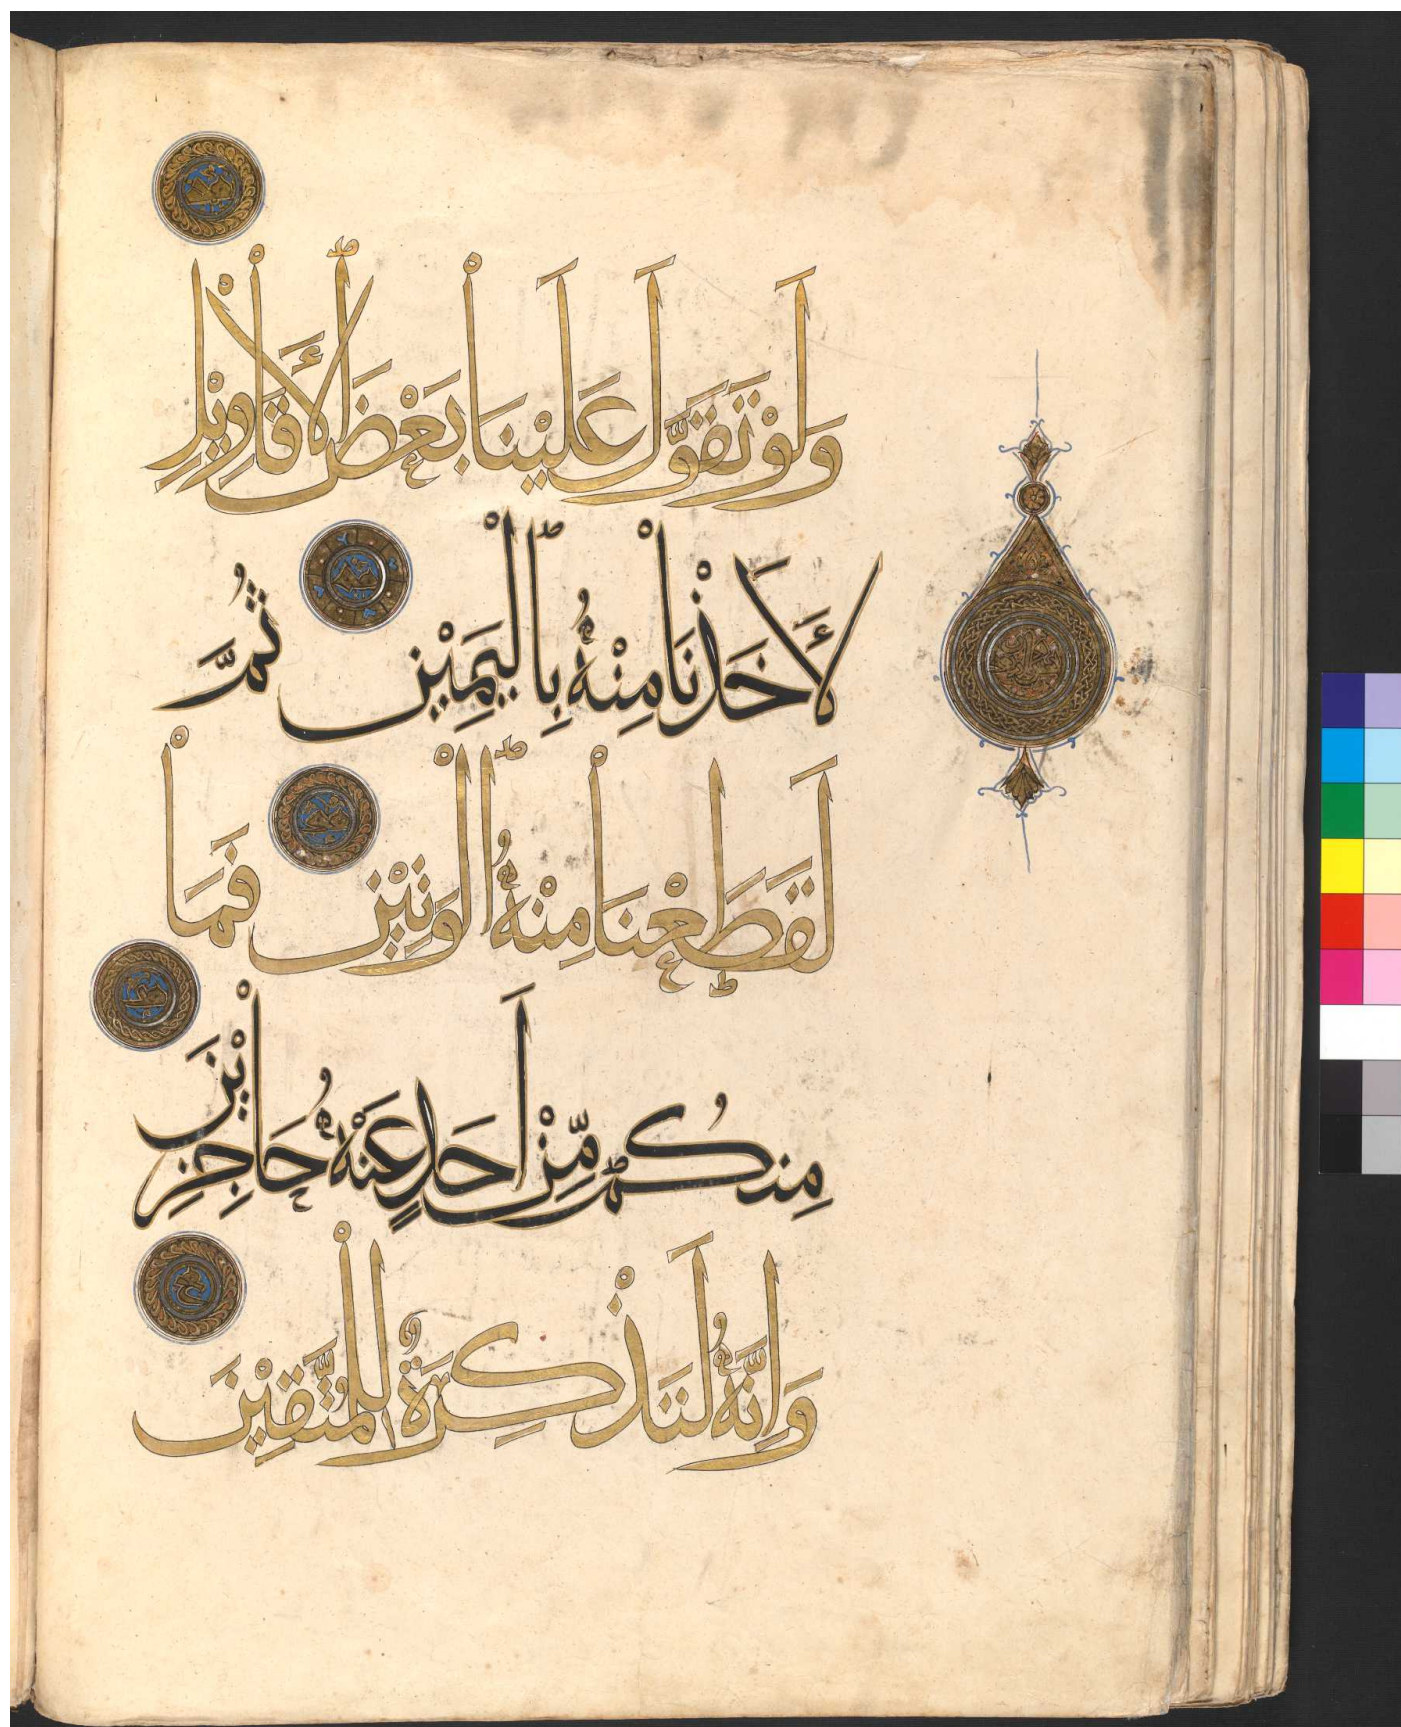 وَلَوْ تَقَوَّلَ عَلَيْنَا بَعْضَ الْأَقَاوِيْلِ
لَأَخَذْنَا مِنْهُ بِالْيَمِيْنِ ثُمَّ
لَقَطَعْنَا مِنْهُ الْوَتِيْنَ فَمَا
مِنكُم مِّنْ اَحَدٍ عَنْهُ حَاجِزِيْنَ
وَاِنَّهُ لَتَذْكِرَةٌ لِلْمُتَّقِيْنَ